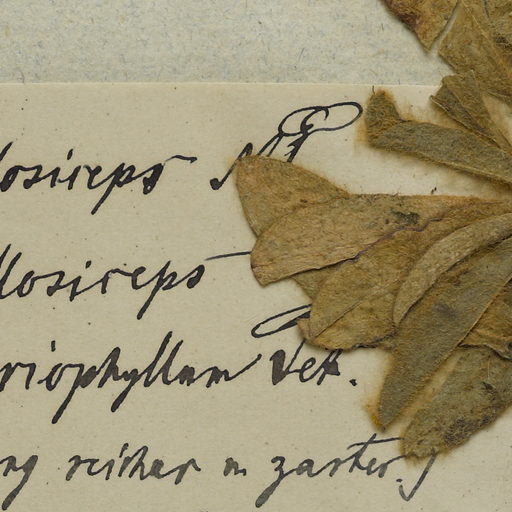 losiceps
llosiceps
riophyllum Vet.
ng reicher u zarter.)